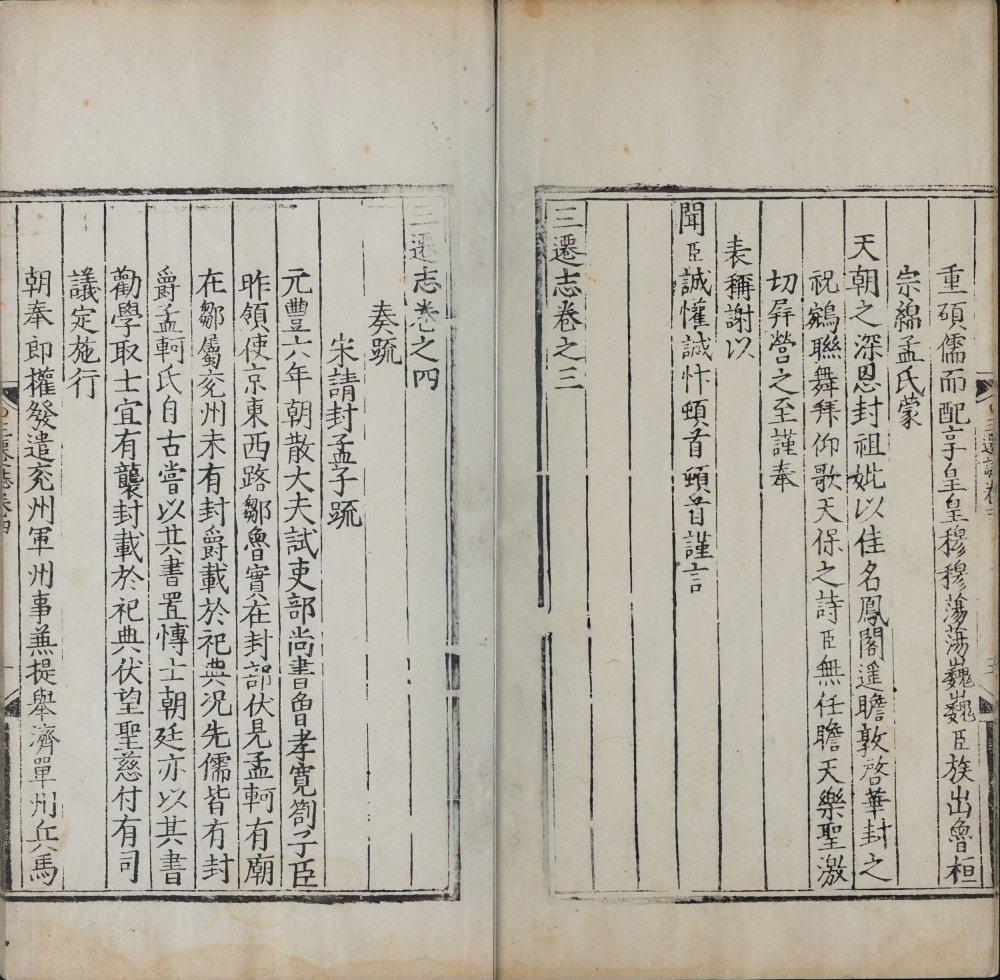 重碩儒而配享皇皇穆穆蕩蕩巍巍臣族出魯桓
宗綿孟氏蒙
天朝之深恩封祖妣以佳名鳳閣遥瞻敦啓華封之
祝鵷聯舞拜仰歌天保之詩臣無任瞻天樂聖激
切屛營之至謹奉
表稱謝以
聞臣誠懽誠忭頓首頓首謹言
三遷志卷之三
三遷志卷之四
奏疏
宋請封孟子疏
元豐六年朝散大夫試吏部尚書曾孝寬劄子臣
昨領使京東西路鄒魯實在封部伏見孟軻有廟
在鄒屬兖州未有封爵載於祀典况先儒皆有封
爵孟軻氏自古嘗以其書置博士朝廷亦以其書
勸學取士宜有襲封載於祀典伏望聖慈付有司
議定施行
朝奉郎權發遣兖州軍州事兼提舉濟單州兵馬